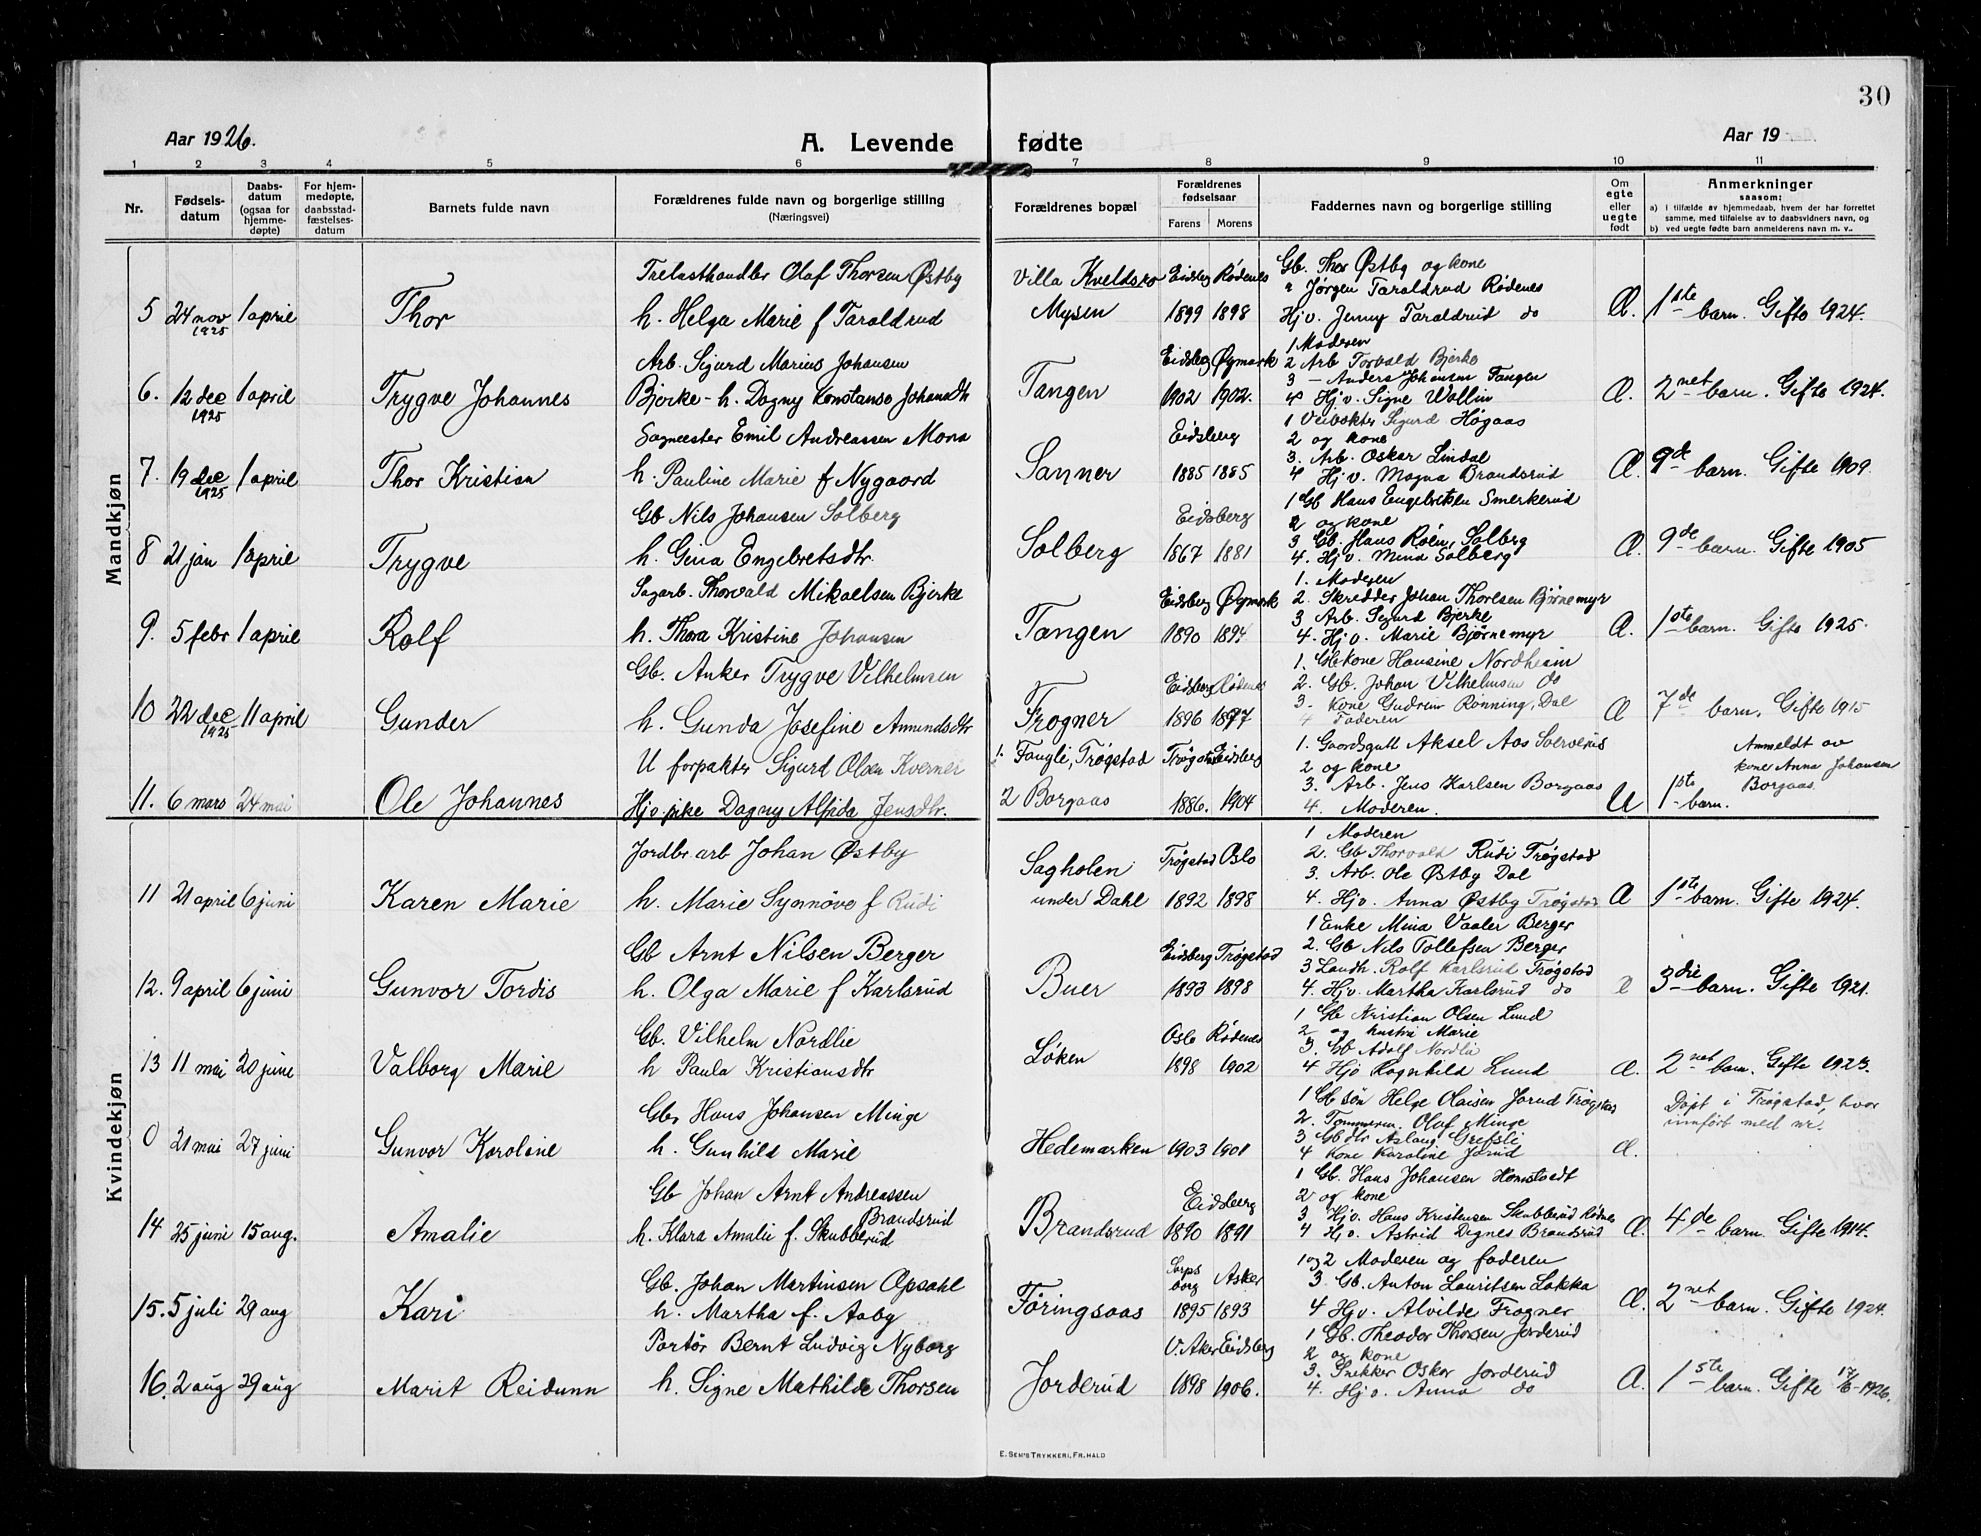 30
Aar 1926.
A. Levende fødte
Aar 19
1 2 3 4 5 6 7 8 9 10 11
Nr.
Fødsels-
datum
Daabs-
datum
(ogsaa for
hjemme-
døpte)
For hjem-
medøpte,
daabsstad-
fæstelses-
datum
Barnets fulde navn
Forældrenes fulde navn og borgerlige stilling
(Næringsvei)
Forældrenes bopæl
Forældrenes
fødselsaar
Farens Morens
Faddernes navn og borgerlige stilling
Om
egte
eller
uegte
født
Anmerkninger
saasom:
a) i tilfælde av hjemmedaab, hvem der har forrettet
samme, med tilføielse av to daabsvidners navn, og
b) ved uegte fødte barn anmelderens navn m. v..
Mandkjøn
5 24 nov 1925 1 april
Thor
Trelasthandler Olaf Thorsen Østby
h. Helga Marie f Taraldrud
Villa Kveldsro
Mysen
Eidsberg Rødenes
1899 1898
Gb. Thor Østby og kone
" Jørgen Taraldrud Rødenes
Hjv. Jenny Taraldrud do
Æ. 1ste barn. Gifte 1924.
6. 12 dec 1925 1 april
Trygve Johannes
Arb. Sigurd Marius Johansen
Bjørke - h. Dagny Konstanse Johansdtr
Tangen
Eidsberg Øymark
1902 1902.
1 Moderen
2 Arb Torvald Bjerke
3 — Anders Johansen Tangen
4 Hjv. Signe Wollin
Æ. 2net barn. Gifte 1924.
7. 19 dec 1925 1 april
Thor Kristian
Sagmester Emil Andreassen Mona
h. Pauline Marie f Nygaard
Sanner
Eidsberg
1885 1885
1 Veivokter Sigurd Høgaas
2 og kone
3. Arb. Oskar Lindal
4 Hjv. Magna Brandsrud
Æ. 9de barn. Gifte 1909.
8 21 jan 1 april
Trygve
Gb Nils Johansen Solberg
h. Gina Engebretsdtr.
Solberg
Eidsberg
1867 1881
1 Gb Hans Engebretsen Smerkerud
2 og kone
3 Gb. Hans Røen, Solberg
4. Hjv. Mina Solberg
Æ. 9de barn. Gifte 1905
9. 5 febr 1 april
Rolf
Sagarb. Thorvald Mikaelsen Bjerke
h. Thora Kristine Johansen
Tangen
Eidsberg Øymark
1890 1894
1. Moderen
2. Skredder Johan Thorlsen Bjørnemyr
3 Arb. Sigurd Bjerke
4. Hjv. Marie Bjørnemyr
Æ. 1ste barn. Gifte 1925.
10 22 dec 1925 11 april
Gunder
Gb. Anker Trygve Vilhelmsen
h. Gunda Josefine Amundsdtr
Frogner
Eidsberg Rødenes
1896 1897
1. Gbkone Hansine Nordheim
2. Gb. Johan Vilhelmsen do
3. kone Gudrun Rønning, Dal
4 Faderen
Æ 7de barn. Gifte 1915
11. 6 mars 24 mai
Ole Johannes
U forpakter Sigurd Olsen Kverner
Hjv. pike Dagny Alfida Jensdtr.
1. Fangli, Trøgstad
2 Borgaas
Trøgstad Eidsberg
1886. 1904
1. Gaardsgutt Aksel Aas
2 og kone
3. Arb. Jens Karlsen Borgaas
4. Moderen.
U 1ste barn.
Anmeldt av
kone Anna Johansen
Borgaas.
Kvindekjøn
11 21 april 6 juni
Karen Marie
Jordbr. arb Johan Østby
h. Marie Synnøve f Rudi
Sagholen
under Dahl
Trøgstad Oslo
1892 1898
1 Moderen
2. Gb Thorvald Rudi Trøgstad
3. Arb. Ole Østby Dal
4. Hjv. Anna Østby Trøgstad
Æ 1ste barn. Gifte 1924.
12. 9 april 6 juni
Gunvor Tordis
Gb Arnt Nilsen Berger
h. Olga Marie f Karlsrud
Buer
Eidsberg Trøgstad
1893 1898
1 Enke Mina Vaaler Berger
2. Gb Nils Tollefsen Berger
3 Landh. Rolf Karlsrud Trøgstad
4. Hjv. Martha Karlsrud do
3die barn. Gifte 1921.
13 11 mai 20 juni
Valborg Marie
Gb. Vilhelm Nordlie
h Paula Kristiansdtr
Løken
Oslo Rødenes
1898 1902
1 Gb Kristian Olsen Lund
2 og hustru Marie
3. Gb Adolf Nordli
4 Hjv Ragnhild Lund
Æ. 2net barn. Gifte 1923.
0 21 mai 27 juni
Gunvor Karoline
Gbr Hans Johansen Minge
h. Gunhild Marie
Hedemarken 1903 1901
1 Gb søn Helge Olaisen Jorud Trøgstad
2. Tømmerm. Olaf Minge
3 Gbdtr Aslaug Grefsli
4 kone Karoline Jorud
Æ.
Døpt i Trøgstad, hvor
innført med nr.
14 25 juni 15 aug.
Amalie
Gb Johan Arnt Andreassen
Brandsrud
h. Klara Amalie f. Skubberud
Brandsrud
Eidsberg
1890 1891
1 Gb. Hans Johansen Homstvedt
2 og kone
3 Hjv. Hans Kristensen Skubberud Rødnes
4 Hjv. Astrid Dignes Brandsrud
Æ. 4de barn. Gifte 1914.
15. 5 juli 29 aug
Kari
Gb. Johan Martinsen Opsahl
h. Martha f. Aaby
Føringsaas
Sarps
borg Asker
1895 1893
1 og 2 Moderen og faderen
3 Gb. Anton Lauritsen Løkka
4 Hjv. Alvilde Frogner
Æ. 2net barn. Gifte 1924.
16. 2 aug 29 aug
Marit Reidunn
Portør Bernt Ludvig Nyborg
h. Signe Mathilde Thorsen
Jorderud
V. Aker Eidsberg
1898 1906.
1 Gb. Theodor Thorsen Jorderud
2 og kone
3. Snekker Oskar Jorderud
4. Hjv. Anna do
Æ. 1ste barn. Gifte 17/6-1926.
E. Sem's Trykkeri, Fr.hald